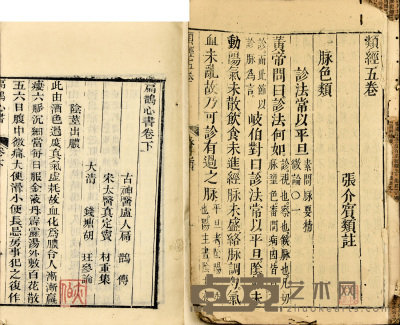 類經五卷
張介賓類註
脈色類
診法常以平旦
素問脈要精
微論○一
黃帝問曰診法何如
岐伯對曰診法常以平旦陰氣未
動陽氣未散飲食未進經脈未盛絡脈調勻氣
血未亂故乃可診有過之脈
扁鵲心書卷下
古神醫盧人扁鵲傳
宋太醫真定竇材重集
大清錢塘胡珏參論
陰莖出膿
此由酒色過度真氣虛耗故血化為膿令人漸漸羸
瘦六脈沉細當每日服金液丹霹靂湯外敷百花散
五六日腹中微痛大便滑小便長忌房事犯之復作